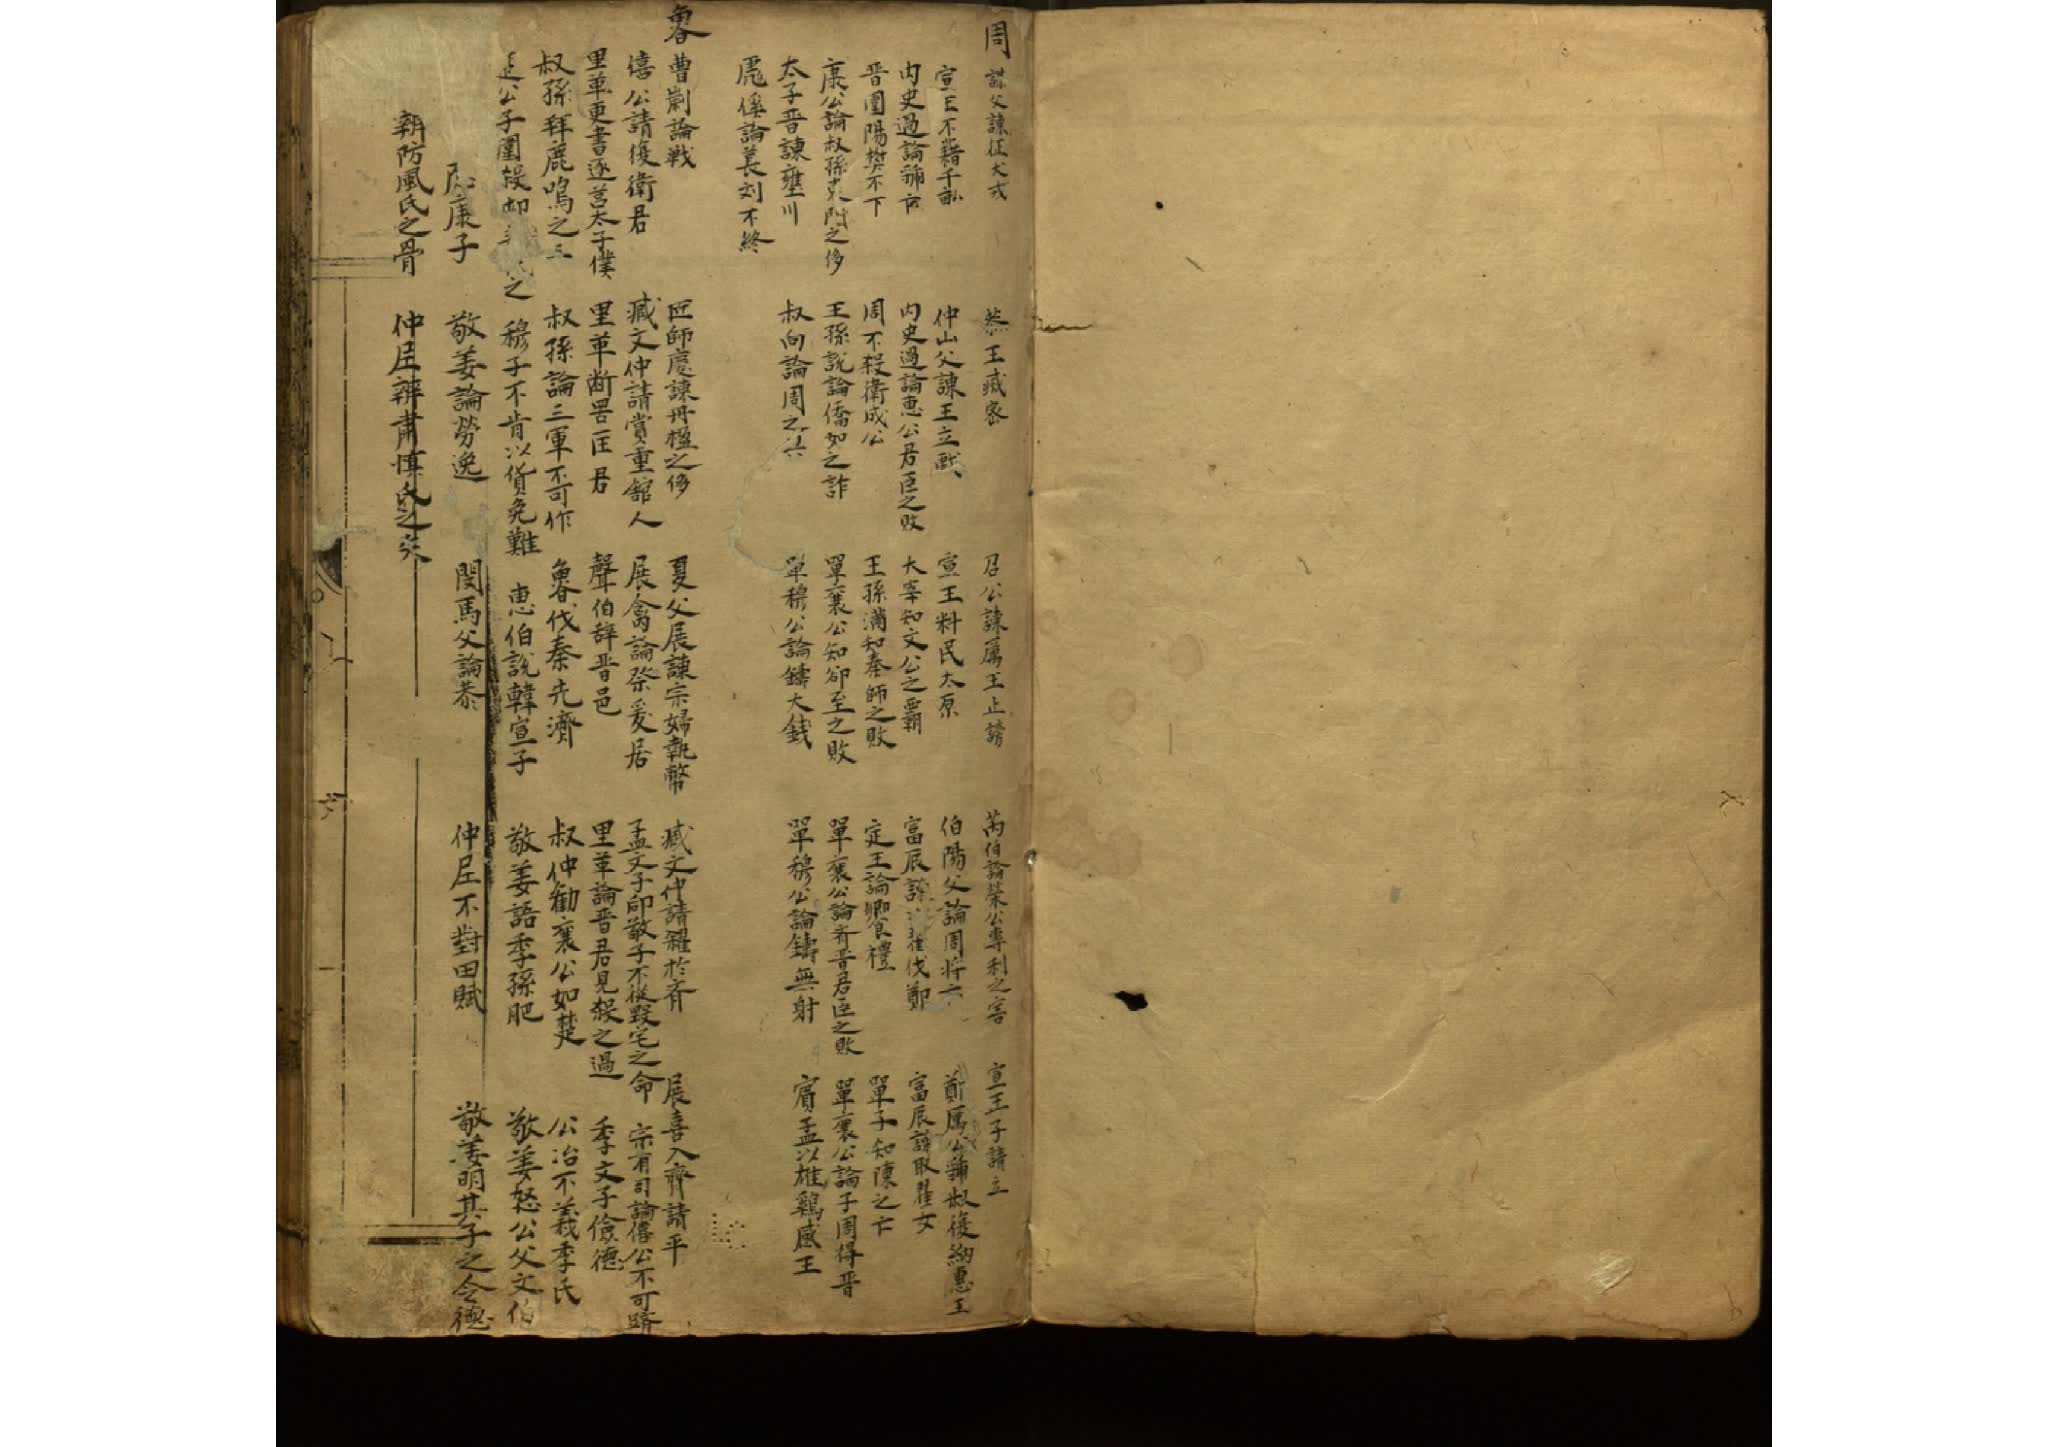 周 謀父諫征犬戎 恭王滅密 召公諫厲王止謗 芮伯論榮公專利之害 宣王子請立
宣王不籍千畝 仲山父諫王立戲 宣王料民太原 伯陽父論周將亡 鄭厲公虢叔復納惠王
內史過論虢亡 內史過論惠公君臣之敗 大宰知文公之霸 富辰諫以翟伐鄭 富辰諫取翟女
晋圍陽樊不下 周不殺衛成公 王孫滿知秦師之敗 定王論饗食禮 單子知陳之亡
康公論叔孫東門之侈 王孫說論僑如之詐 單襄公知郤至之敗 單襄公論齐晋君臣之敗 單襄公論子周得晋
太子晋諫壅川 叔向論周之 單穆公論鑄大錢 單穆公論鑄無射 賓孟以雄鷄感王
彪傒論萇刘不終
魯 曹劌論戰 匠師慶諫丹楹之侈 夏父展諫宗婦執幣 臧文仲請糴於齐 展喜入齊請平
僖公請復衛君 臧文仲請賞重館人 展禽論祭爰居 孟文子郈敬子不從毀宅之命 宗有司論僖公不可躋
里革更書逐莒太子僕 里革断罟匡君 聲伯辞晋邑 里革論晋君見殺之過 季文子儉德
叔孫拜鹿鳴之三 叔孫論三軍不可作 魯伐秦先濟 叔仲勸襄公如楚 公冶不義季氏
公子圍 之 穆子不肯以貨免難 惠伯說韓宣子 敬姜語季孫肥 敬姜怒公父文伯
康子 敬姜論勞逸 閔馬父論恭 仲尼不對田賦 敬姜明其子之令德
辨防風氏之骨 仲尼辨肅慎氏之矢